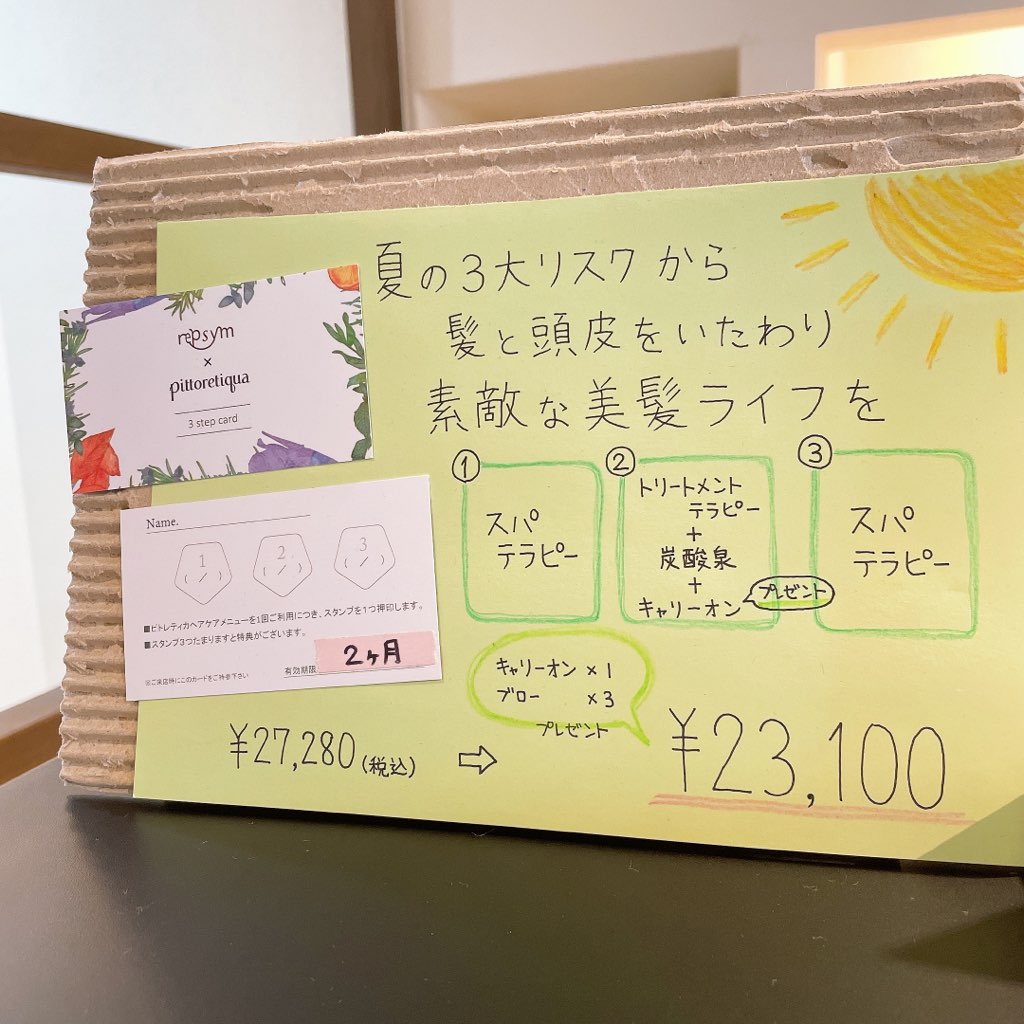 夏の3大リスクから
髪と頭皮をいたわり
素敵な美髪ライフを
repsym
×
pittoretiqua
3 step card
Name.
1
( / )
2
( / )
3
( / )
■ピトレティカヘアケアメニューを1回ご利用につき、スタンプを1つ押印します。
■スタンプ3つたまりますと特典がございます。
有効期限
2ヶ月
※ご来店時にこのカードをご持参下さい
①
スパ
テラピー
②
トリートメント
テラピー
+
炭酸泉
+
キャリーオン
プレゼント
③
スパ
テラピー
キャリーオン ×1
ブロー ×3
プレゼント
¥27,280(税込)
⇨
¥23,100